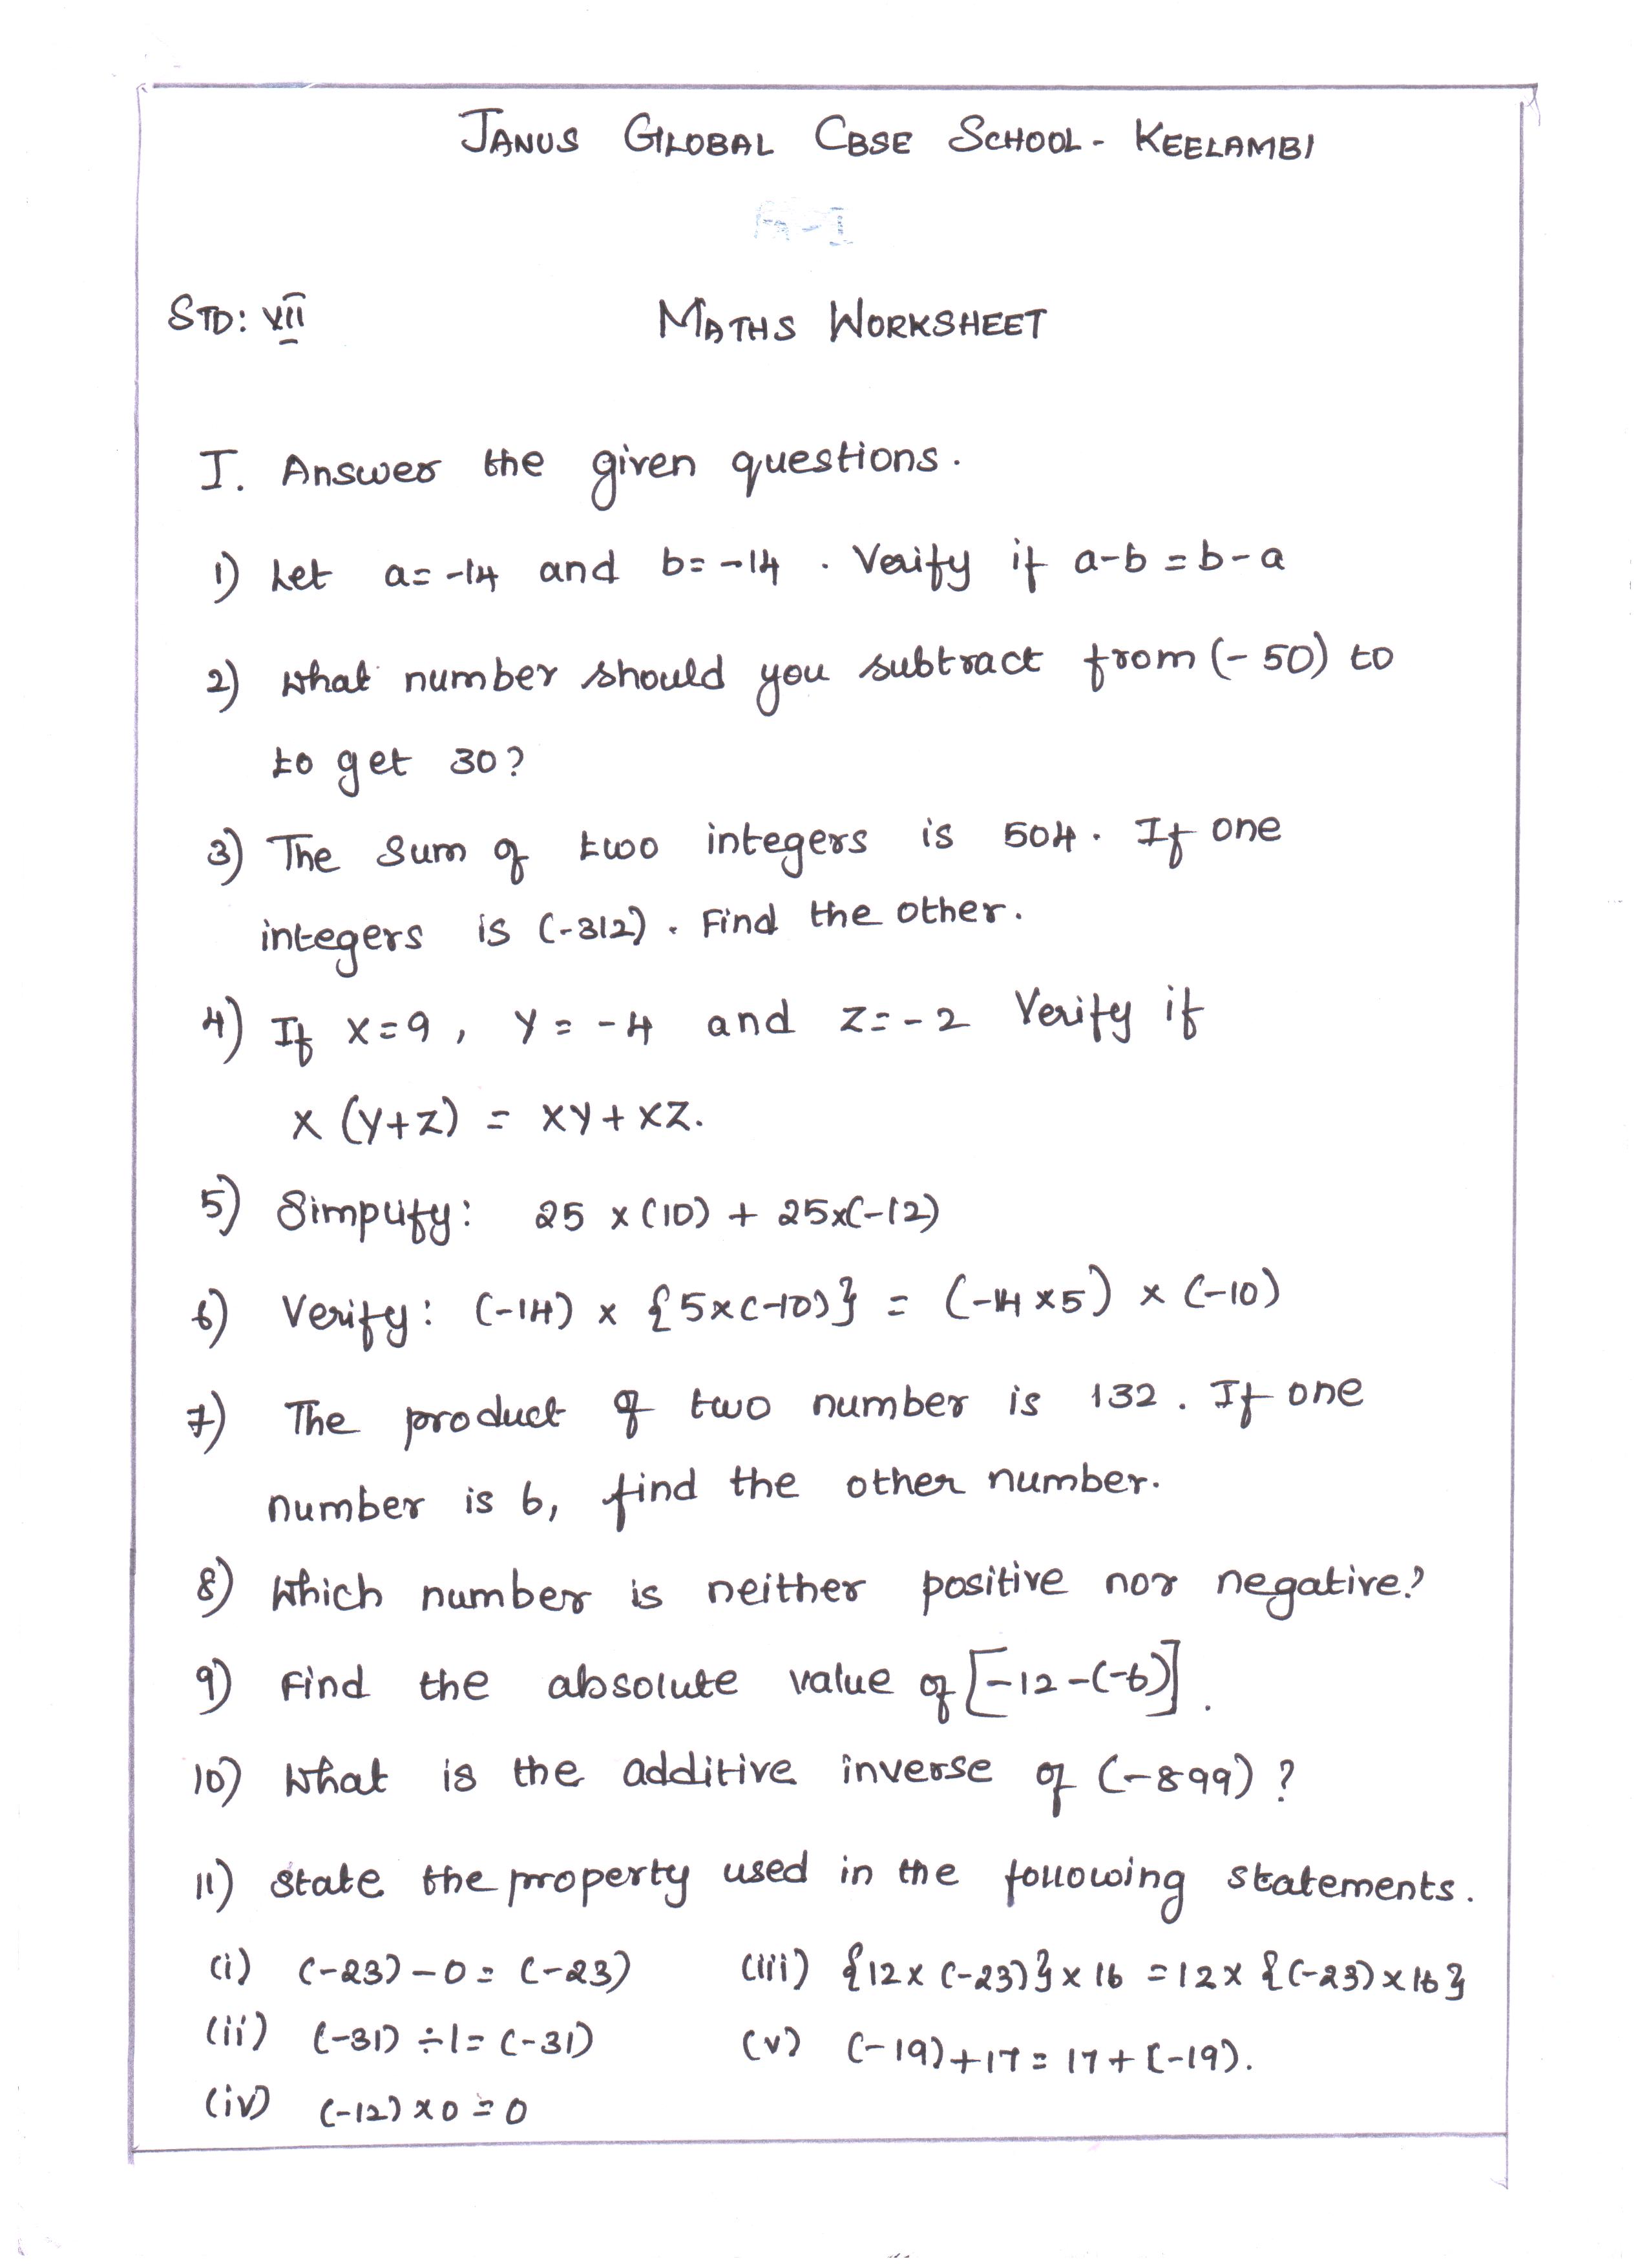 JANUS GLOBAL CBSE SCHOOL - KEELAMBI
STD: VII
MATHS WORKSHEET
I. Answer the given questions.
1) Let a = -14 and b = -14 . Verify if a-b = b-a
2) What number should you subtract from (-50) to
to get 30?
3) The sum of two integers is 504. If one
integers is (-312). Find the other.
4) If x=9, y = -4 and z = -2 Verify if
x (y+z) = xy + xz.
5) Simplify: 25 x (10) + 25x(-12)
6) Verify: (-14) x {5x(-10)} = (-14 x5) x (-10)
7) The product of two number is 132. If one
number is 6, find the other number.
8) Which number is neither positive nor negative?
9) Find the absolute value of [-12-(-6)].
10) What is the additive inverse of (-899) ?
11) State the property used in the following statements.
(i) (-23) - 0 = (-23) (iii) {12x (-23)} x 16 = 12x {(-23) x 16}
(ii) (-31) ÷ 1 = (-31) (v) (-19)+17 = 17+(-19).
(iv) (-12) x 0 = 0